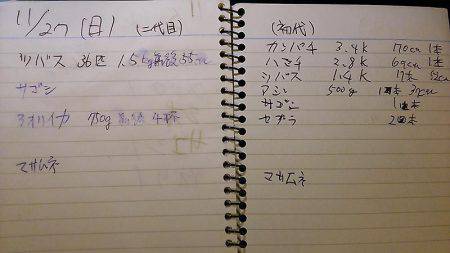 11/27 (日) (二代目)
ツバス 36匹 1.5kg前後 55cm
サゴシ
アオリイカ 750g前後 4杯
マサムネ
(初代)
カンパチ 3.4k 70cm 1本
ハマチ 2.8k 69cm 1本
ツバス 1.4k 17本 52cm
アジ 500g 1本 37cm
サゴシ 1本
セグラ 2本
マサムネ